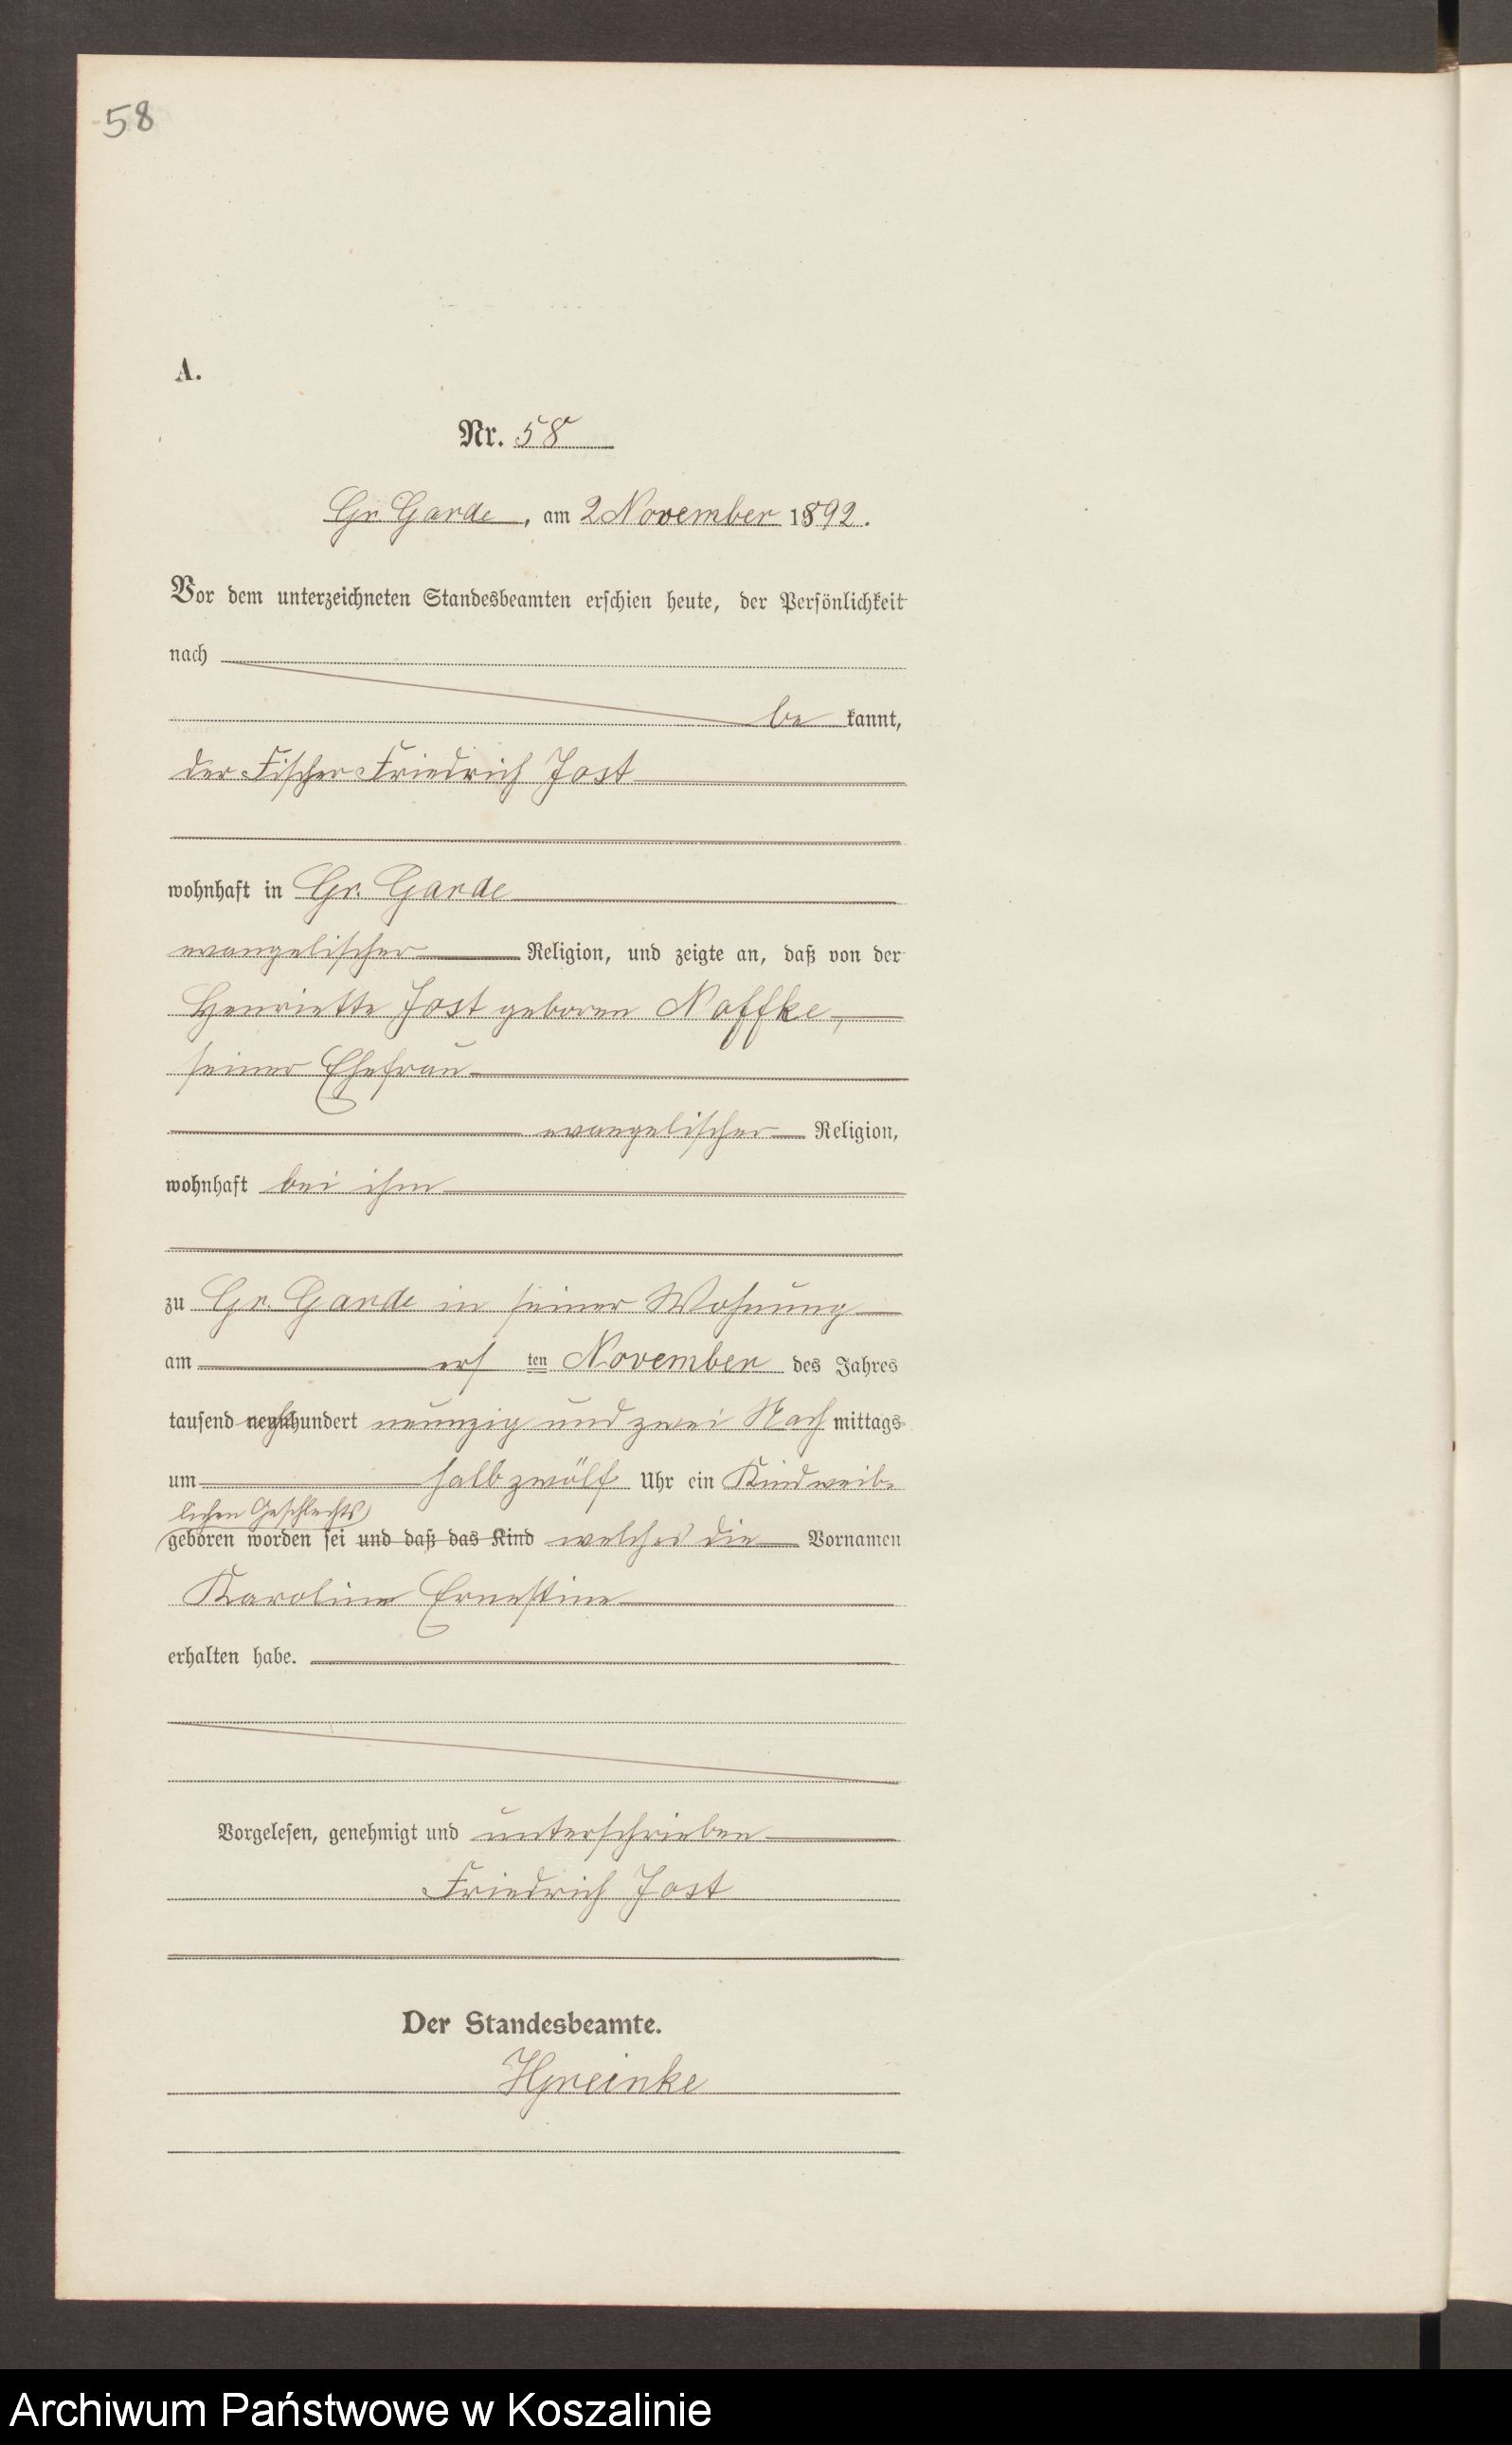 58
A.
Nr. 58
Gr. Garde, am 2 November 1892.
Vor dem unterzeichneten Standesbeamten erschien heute, der Persönlichkeit
nach
be kannt,
der Fischer Friedrich Jost
wohnhaft in Gr. Garde
evangelischer Religion, und zeigte an, daß von der
Henriette Jost geboren Noffke,
seiner Ehefrau
evangelischer Religion,
wohnhaft bei ihm
zu Gr. Garde in seiner Wohnung
am ers ten November des Jahres
tausend achthundert neunzig und zwei Nach mittags
um halb zwölf Uhr ein Kind weib-
lichen Geschlechts
geboren worden sei und daß das Kind welches die Vornamen
Karoline Ernestine
erhalten habe.
Vorgelesen, genehmigt und unterschrieben
Friedrich Jost
Der Standesbeamte.
Archiwum Państwowe w Koszalinie